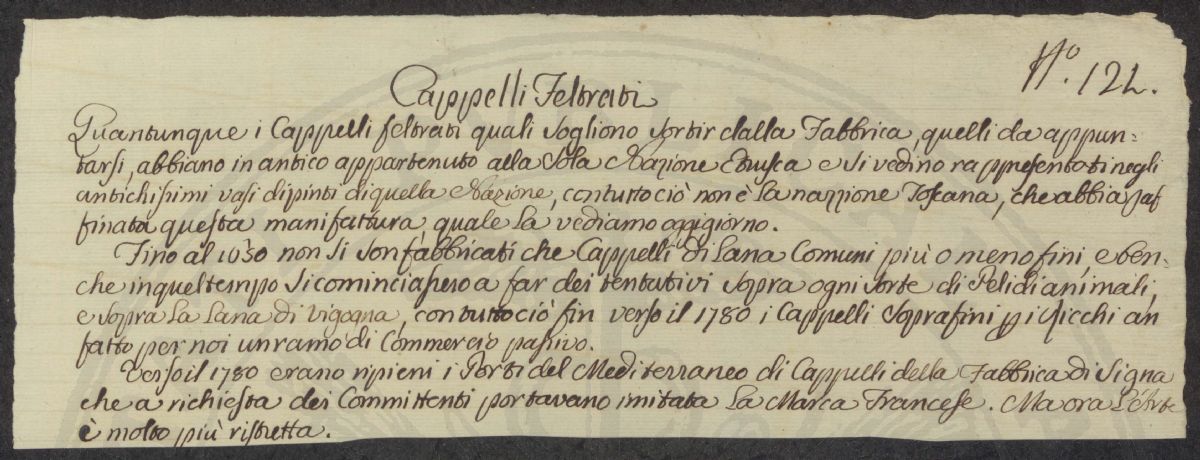 No. 122.
Cappelli Feltrati
Quantunque i Cappelli feltrati quali sogliono sortir dalla Fabbrica, quelli da appun-
tarsi, abbiano in antico appartenuto alla sola Nazione Etrusca e si vedino rappresentati negli
antichissimi vasi dipinti di quella Nazione, contuttociò non è la nazzione Toscana, che abbia raf
finata questa manifattura, quale la vediamo oggigiorno.
Fino al 1630 non si son fabbricati che Cappelli di Lana Comuni più o meno fini, e ben-
che in quel tempo si cominciassero a far dei tentativi sopra ogni sorte di Peli di animali,
e sopra la Lana di Vigogna, contuttociò fin verso il 1780 i Cappelli soprafini p i Ricchi an
fatto per noi un ramo di Commercio passivo.
Verso il 1780 erano ripieni i Porti del Mediterraneo di Cappelli della Fabbrica di Signa
che a richiesta dei Committenti portavano imitata la Marca Francese. Ma ora l'Arte
è molto più ristretta.